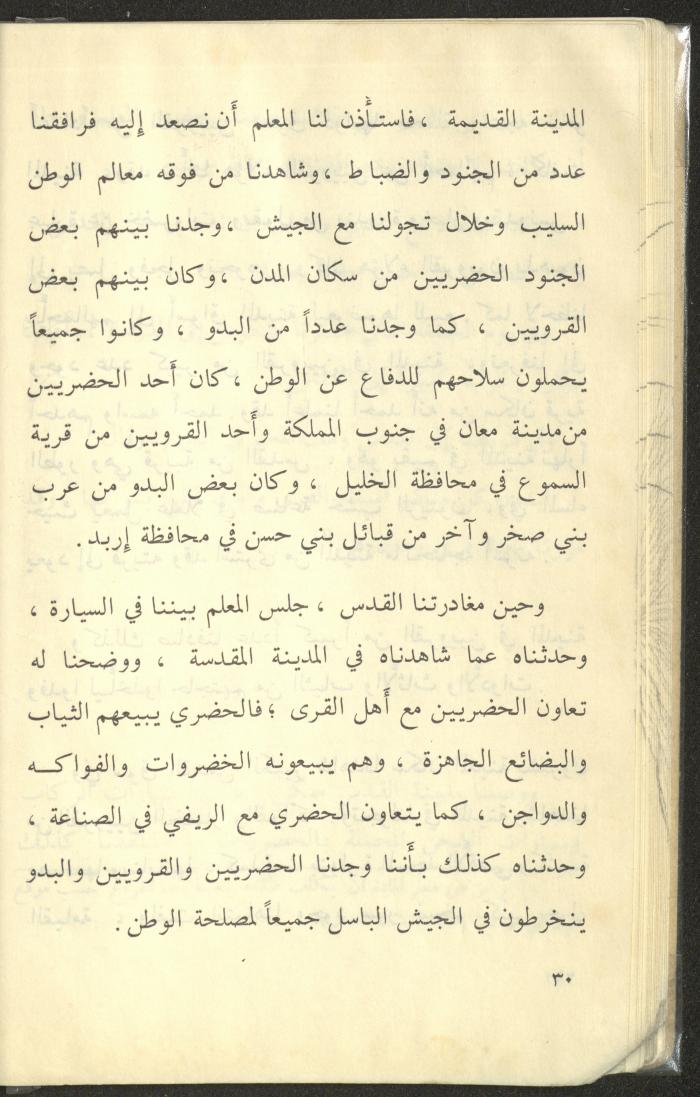 المدينة القديمة ، فاستأذن لنا المعلم أن نصعد إليه فرافقنا
عدد من الجنود والضباط ، وشاهدنا من فوقه معالم الوطن
السليب وخلال تجولنا مع الجيش ، وجدنا بينهم بعض
الجنود الحضريين من سكان المدن ، وكان بينهم بعض
القرويين ، كما وجدنا عدداً من البدو ، وكانوا جميعاً
يحملون سلاحهم للدفاع عن الوطن ، كان أحد الحضريين
من مدينة معان في جنوب المملكة وأحد القرويين من قرية
السموع في محافظة الخليل ، وكان بعض البدو من عرب
بني صخر وآخر من قبائل بني حسن في محافظة إربد .
وحين مغادرتنا القدس ، جلس المعلم بيننا في السيارة ،
وحدثناه عما شاهدناه في المدينة المقدسة ، ووضحنا له
تعاون الحضريين مع أهل القرى ؛ فالحضري يبيعهم الثياب
والبضائع الجاهزة ، وهم يبيعونه الخضروات والفواكه
والدواجن ، كما يتعاون الحضري مع الريفي في الصناعة ،
وحدثناه كذلك بأننا وجدنا الحضريين والقرويين والبدو
ينخرطون في الجيش الباسل جميعاً لمصلحة الوطن .
٣٠